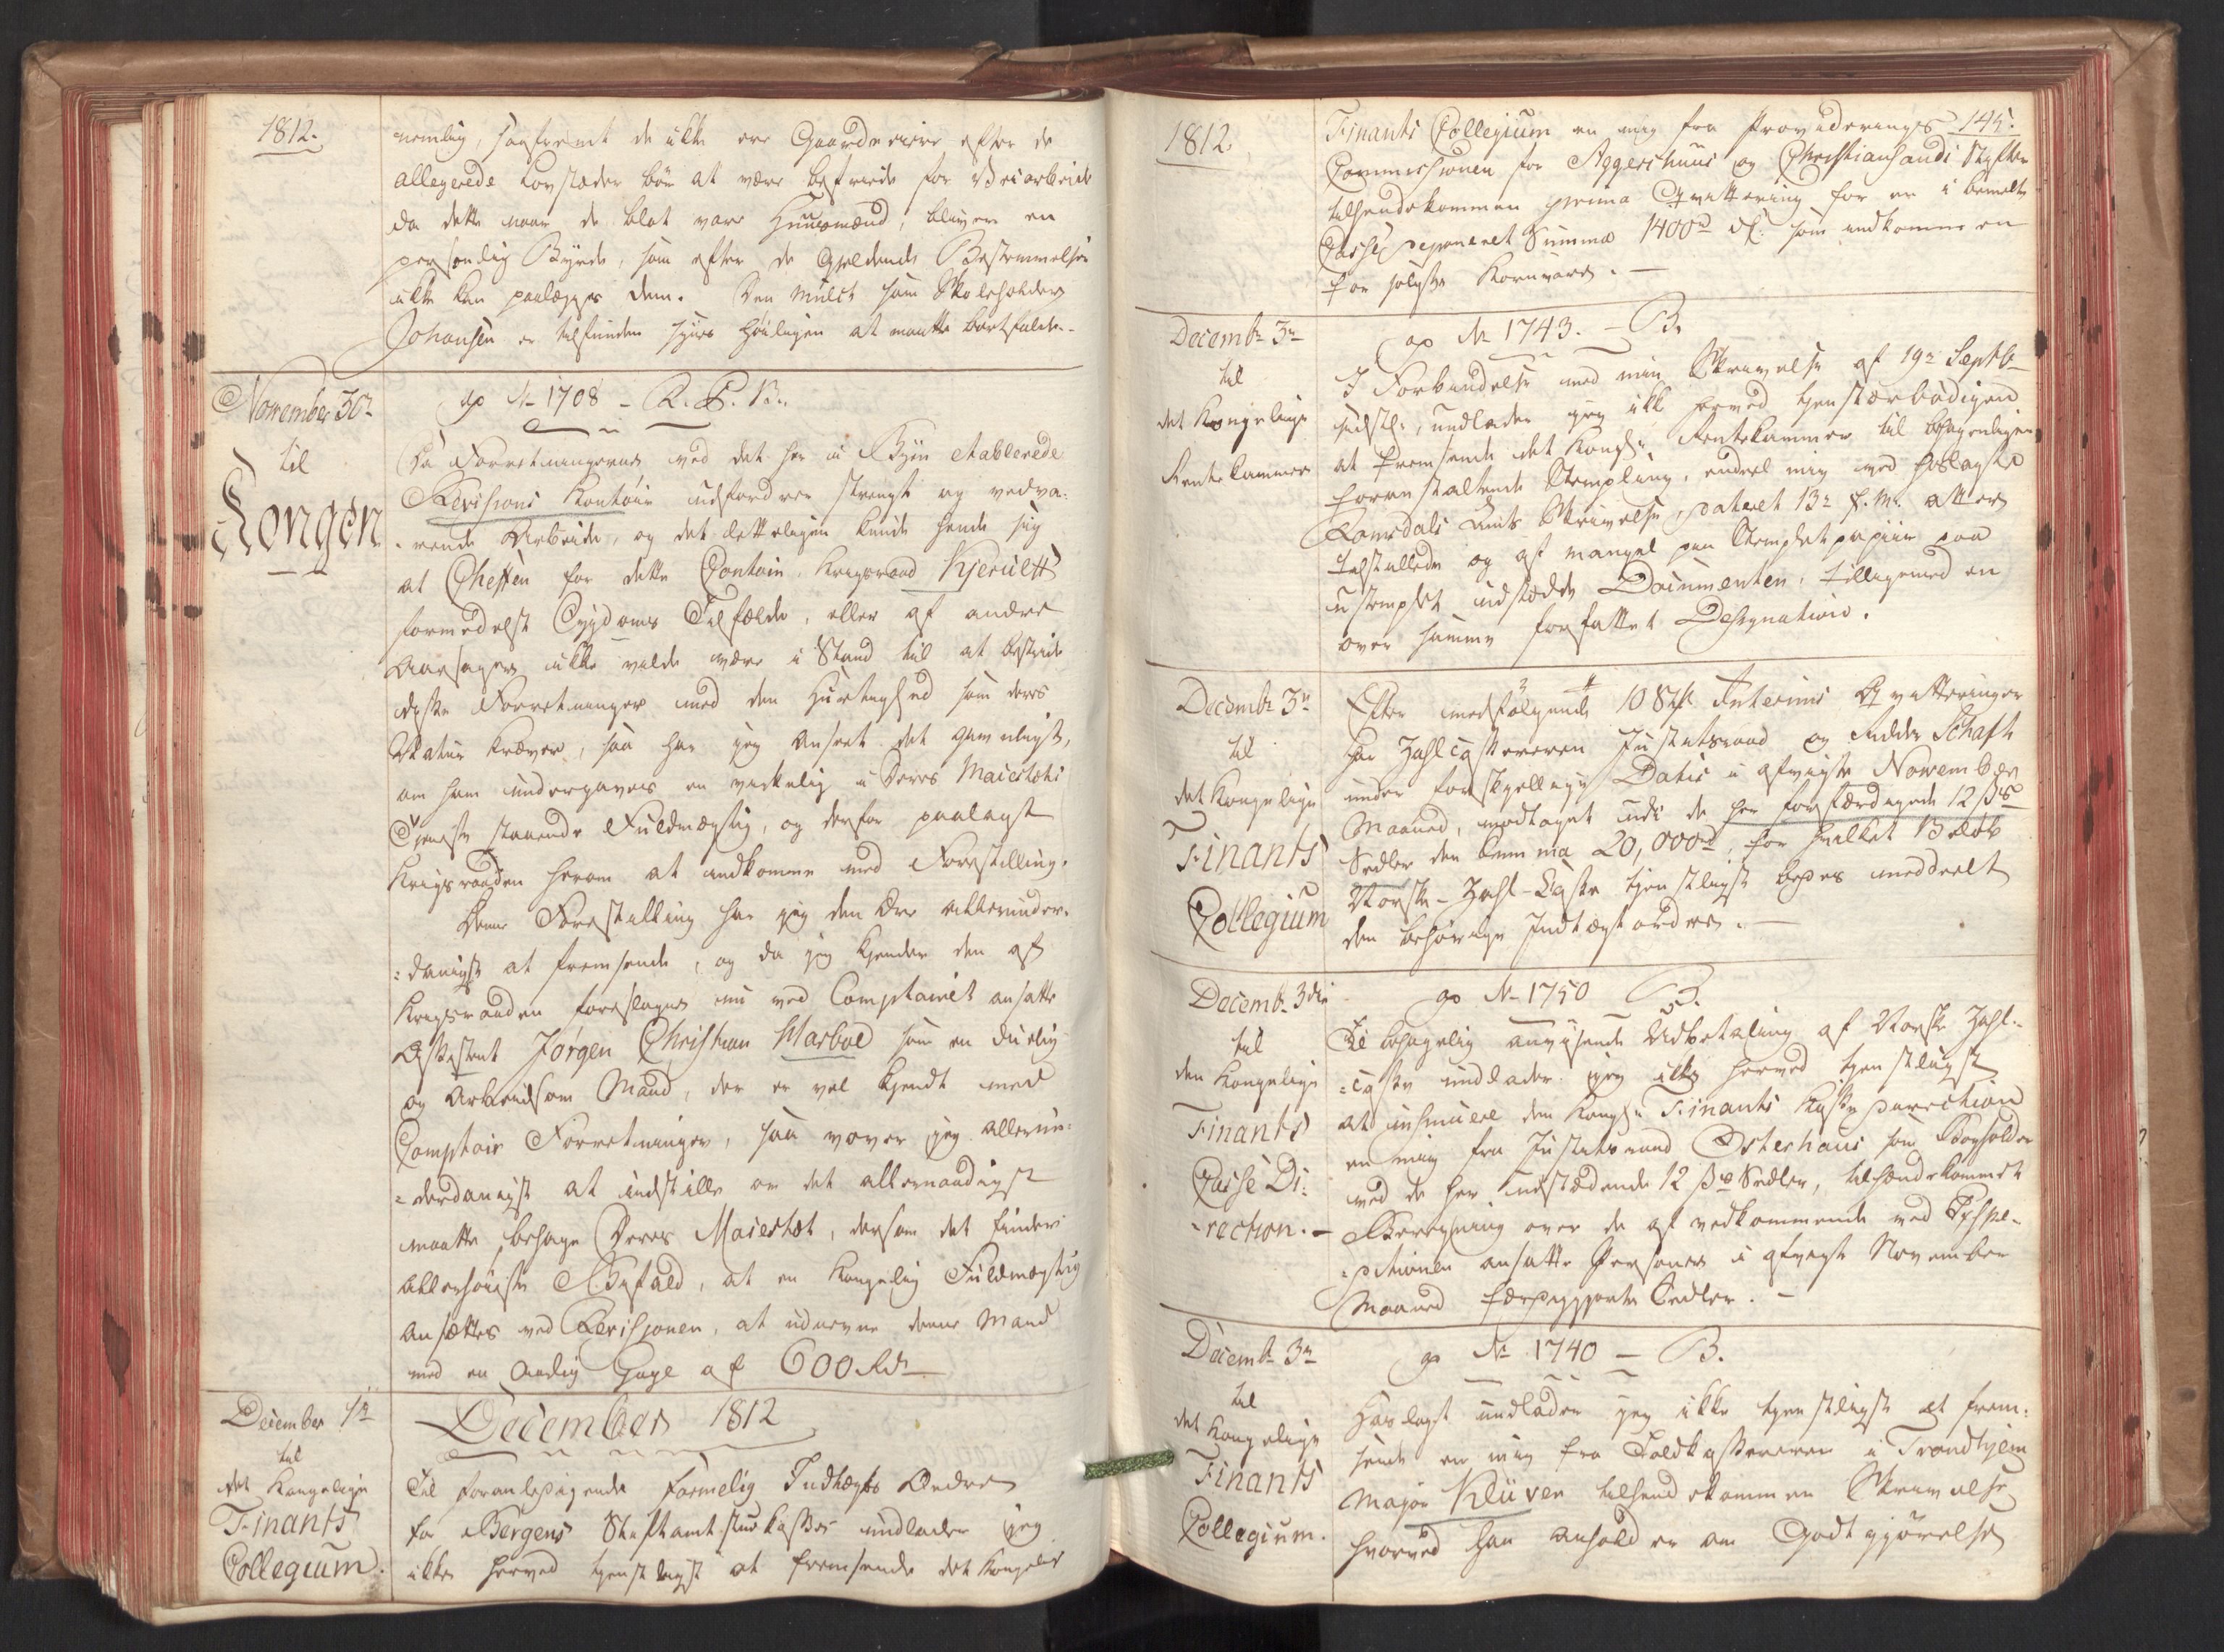 1812.
nemlig, saafremt de ikke ere Gaardeiere efter de
allegerede Lovsteder bør at være befriede for Veiarbeide
da dette naar de blot vare Huusmænd, bliver en
personlig Byrde, som efter de gjeldende Bestemmelser
ikke kan paalægges dem. Den Mulct som Skoleholder
Johansen er tilfunden synes herligen at maatte bortfalde.
November 30te
til
Kongen
ap No 1708 - R. P. B.
Da Forretningerne ved det her i Byen etablerede
Revisions Kontoir udfordrer strengt og vedva-
-rende Arbeide, og det letteligen kunde hende sig
at Cheffen for dette Contoir Krigsraad Kjerulff
formedelst Sygdoms Tilfælde, eller af andre
Aarsager ikke vilde være i Stand til at bestride
disse Forretninger med den Hurtighed som deres
Natur kræver, saa har jeg anseet det gavnligst,
om ham undergaves en virkelig i Deres Maiestæts
Tjeneste staaende Fuldmægtig, og derfor paalagt
Krigsraaden herom at indkomme med Forestilling.
Denne Forestilling har jeg den Ære allerunder-
-danigst at fremsende, og da jeg kjender den af
Krigsraaden foreslagne nu ved Comptoiret ansatte
Assistent Jørgen Christian Marboe som en duelig
og arbeidsom Mand, der er vel kjendt med
Comptoir Forretninger, saa vover jeg allerun-
-derdanigst at indstille om det allernaadigst
maatte behage Deres Maiestæt, dersom det finder
Allerhøieste Bifald, at en Kongelig Fuldmægtig
ansættes ved Revisionen, at udnevne denne Mand
med en aarlig Gage af 600 Rdr
December 1te
til
det Kongelige
Finants
Collegium.
December 1812
Til foranledigende formelig Indtægts Ordre
for Bergens Stiftamtstuekasse undlader jeg
ikke herved tjenstligst at fremsende det Kongelige
1812.
145.
Finants Collegium en mig fra Provideringes
Commissionen for Aggershuus og Christiansands Stifter
tilhændekommen prima Qvittering for en i bemelte
Casse deponeret Summa 1400rd som indkommen
for solgte Kornvare. —
Decembr 3te
til
det Kongelige
Rentekammer
ap No 1743. - B.
I Forbindelse med min Skrivelse af 19de Septb
sidstl. undlader jeg ikke herved tjenstærbødigen
at fremsende det Kongl. Rentekammer til behagelig
foranstaltende Stempling, endeel mig med hoslagte
Romsdals Amts Skrivelse, dateret 13de f. M. atter
tilstillede og af mangel paa Stemplet papiir paa
ustemplet udstædde Documenter, tilligemed en
over samme forfattet Designation.
Decembr 3te
til
det Kongelige
Finants
Collegium
Efter medfølgende 10 Stk. Interims Qvitteringer
har Zahlcasserer Justitsraad og Ridder Schaft
under forskjellige Datis i afvigte November
Maaned, modtaget udi de her forfærdigede 12 ß
Sedler den Summa 20,000rd, for hvilket Beløb
Norske-Zahl-Casse tjenstligst bedes meddeelt
den behørige Indtægtsordre. —
Decembr 3die
til
den Kongelige
Finants
Casse Di-
-rection. -
ap No 1750 B.
Til behagelig anvisende Udbetaling af Norske Zahl-
-casse undlader jeg ikke herved tjenstligst
at insinuere den Kongl. Finants Kasse Direction
en mig fra Justitsraad Osterhaus som Bogholder
ved de her udstædende 12 ß Sedler, tilhændekommet
Beregning over de af vedkommende ved Expe-
-ditionen ansatte Personer i afvigte November
Maaned færdiggjorte Sedler. -
Decembr 3te
til
det Kongelige
Finants
Collegium.
ap No 1740 - B.
Hoslagt undlader jeg ikke tjenstligst at frem-
sende en mig fra Toldkasserer i Trondhjem
Major Klüver tilhændekommen Skrivelse
hvorved han anholder om Godtgjørelse